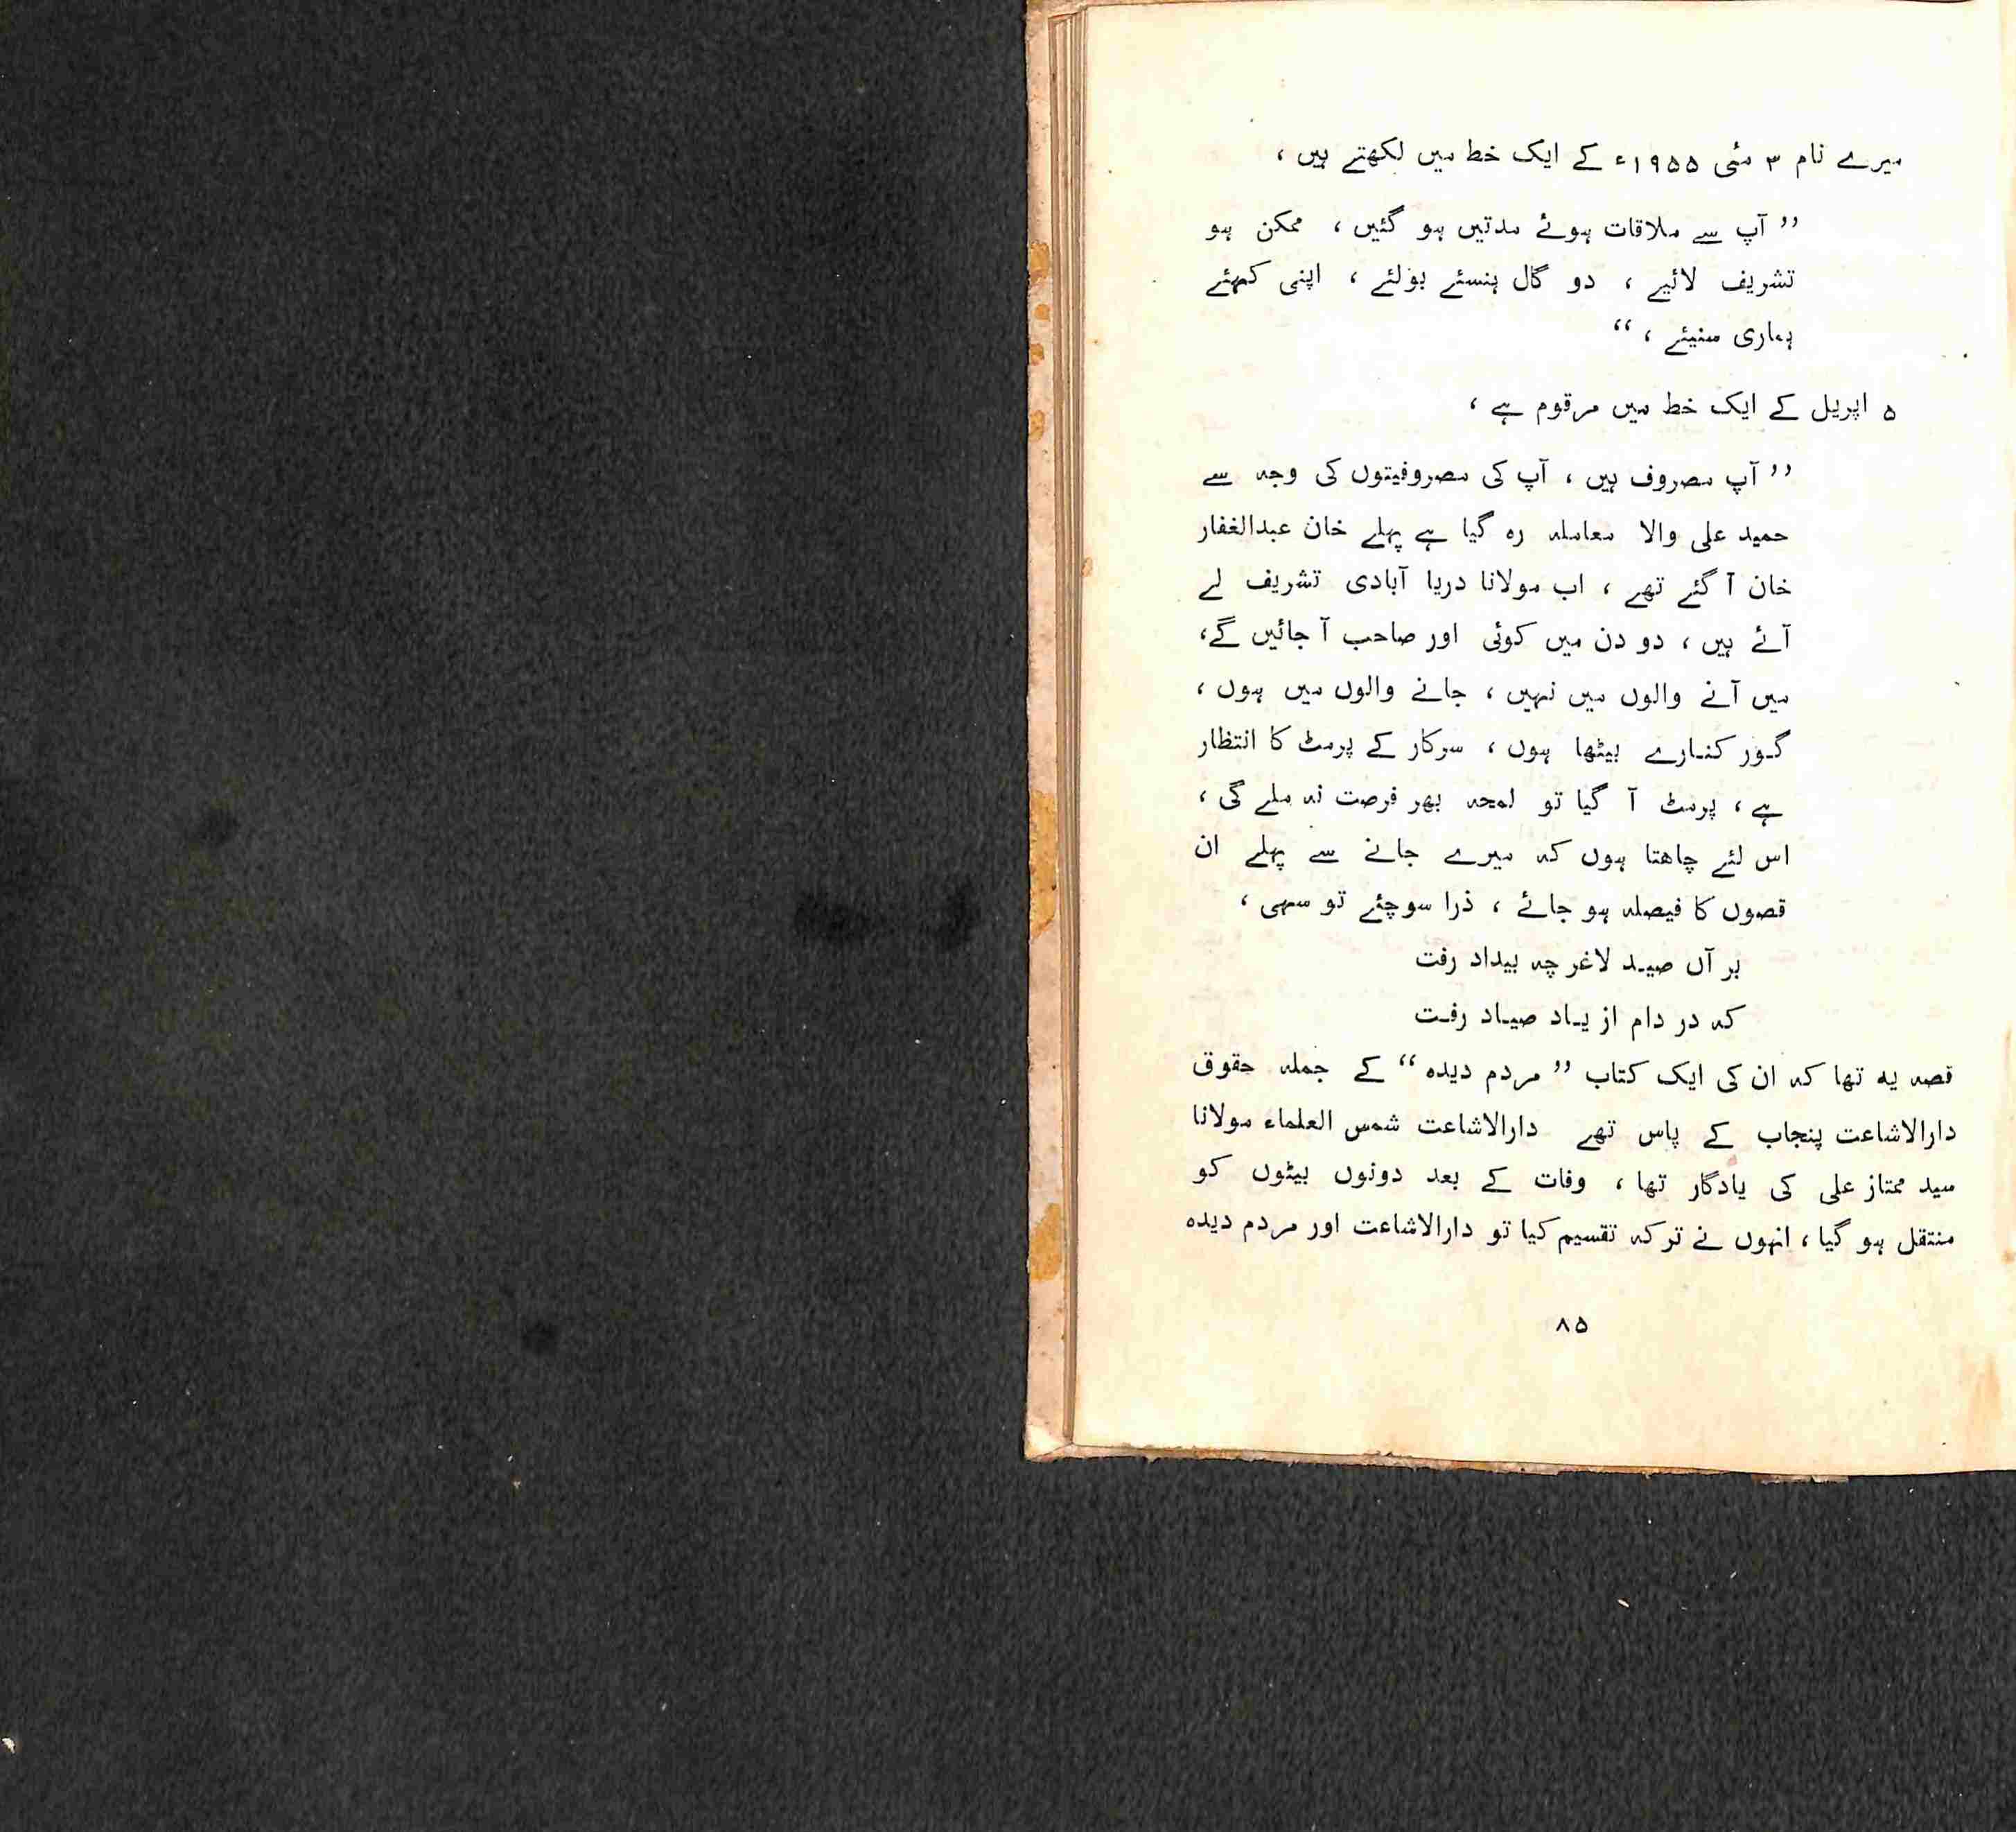 میرے نام ۳ مئی ۱۹۵۵ء کے ایک خط میں لکھتے ہیں ،
” آپ سے ملاقات ہوئے مدتیں ہو گئیں ، ممکن ہو
تشریف لائیے ، دو گال ہنسئے بولئے ، اپنی کہئے
ہماری سنیئے ، “
۵ اپریل کے ایک خط میں مرقوم ہے ،
” آپ مصروف ہیں ، آپ کی مصروفیتوں کی وجہ سے
حمید علی والا معاملہ رہ گیا ہے پہلے خان عبدالغفار
خان آ گئے تھے ، اب مولانا دریا آبادی تشریف لے
آئے ہیں ، دو دن میں کوئی اور صاحب آ جائیں گے،
میں آنے والوں میں نہیں ، جانے والوں میں ہوں ،
گور کنارے بیٹھا ہوں ، سرکار کے پرمٹ کا انتظار
ہے ، پرمٹ آ گیا تو لمحہ بھر فرصت نہ ملے گی ،
اس لئے چاھتا ہوں کہ میرے جانے سے پہلے ان
قصوں کا فیصلہ ہو جائے ، ذرا سوچئے تو سہی ،
بر آں صید لاغر چہ بیداد رفت
کہ در دام از یاد صیاد رفت
قصہ یہ تھا کہ ان کی ایک کتاب ” مردم دیدہ “ کے جملہ حقوق
دارالاشاعت پنجاب کے پاس تھے دارالاشاعت شمس العلماء مولانا
سید ممتاز علی کی یادگار تھا ، وفات کے بعد دونوں بیٹوں کو
منتقل ہو گیا ، انہوں نے ترکہ تقسیم کیا تو دارالاشاعت اور مردم دیدہ
۸۵